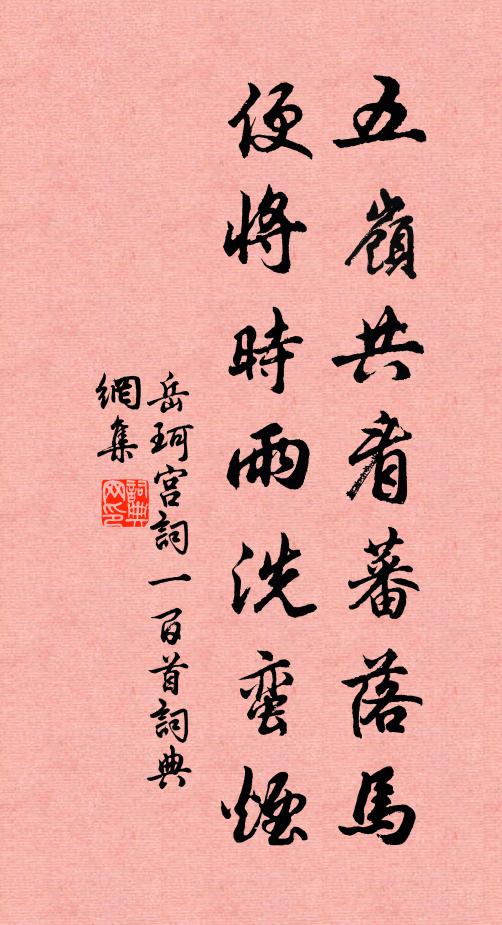 五嶺共看蕃落馬
便將時雨洗蛮煙
岳珂宮詞一百首詞典
網集
詞典
网印